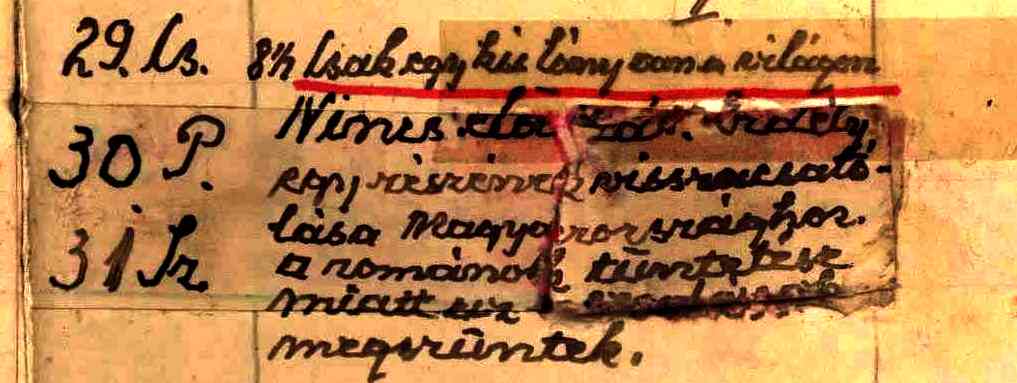 29. Cs. 8½ Csak egy kis lány van a világon
Nincs előadás. Erdély
30 P. egy részének visszacsato-
lása Magyarországhoz.
31 Sz. a románok tüntetése
miatt az előadások
megszüntek.